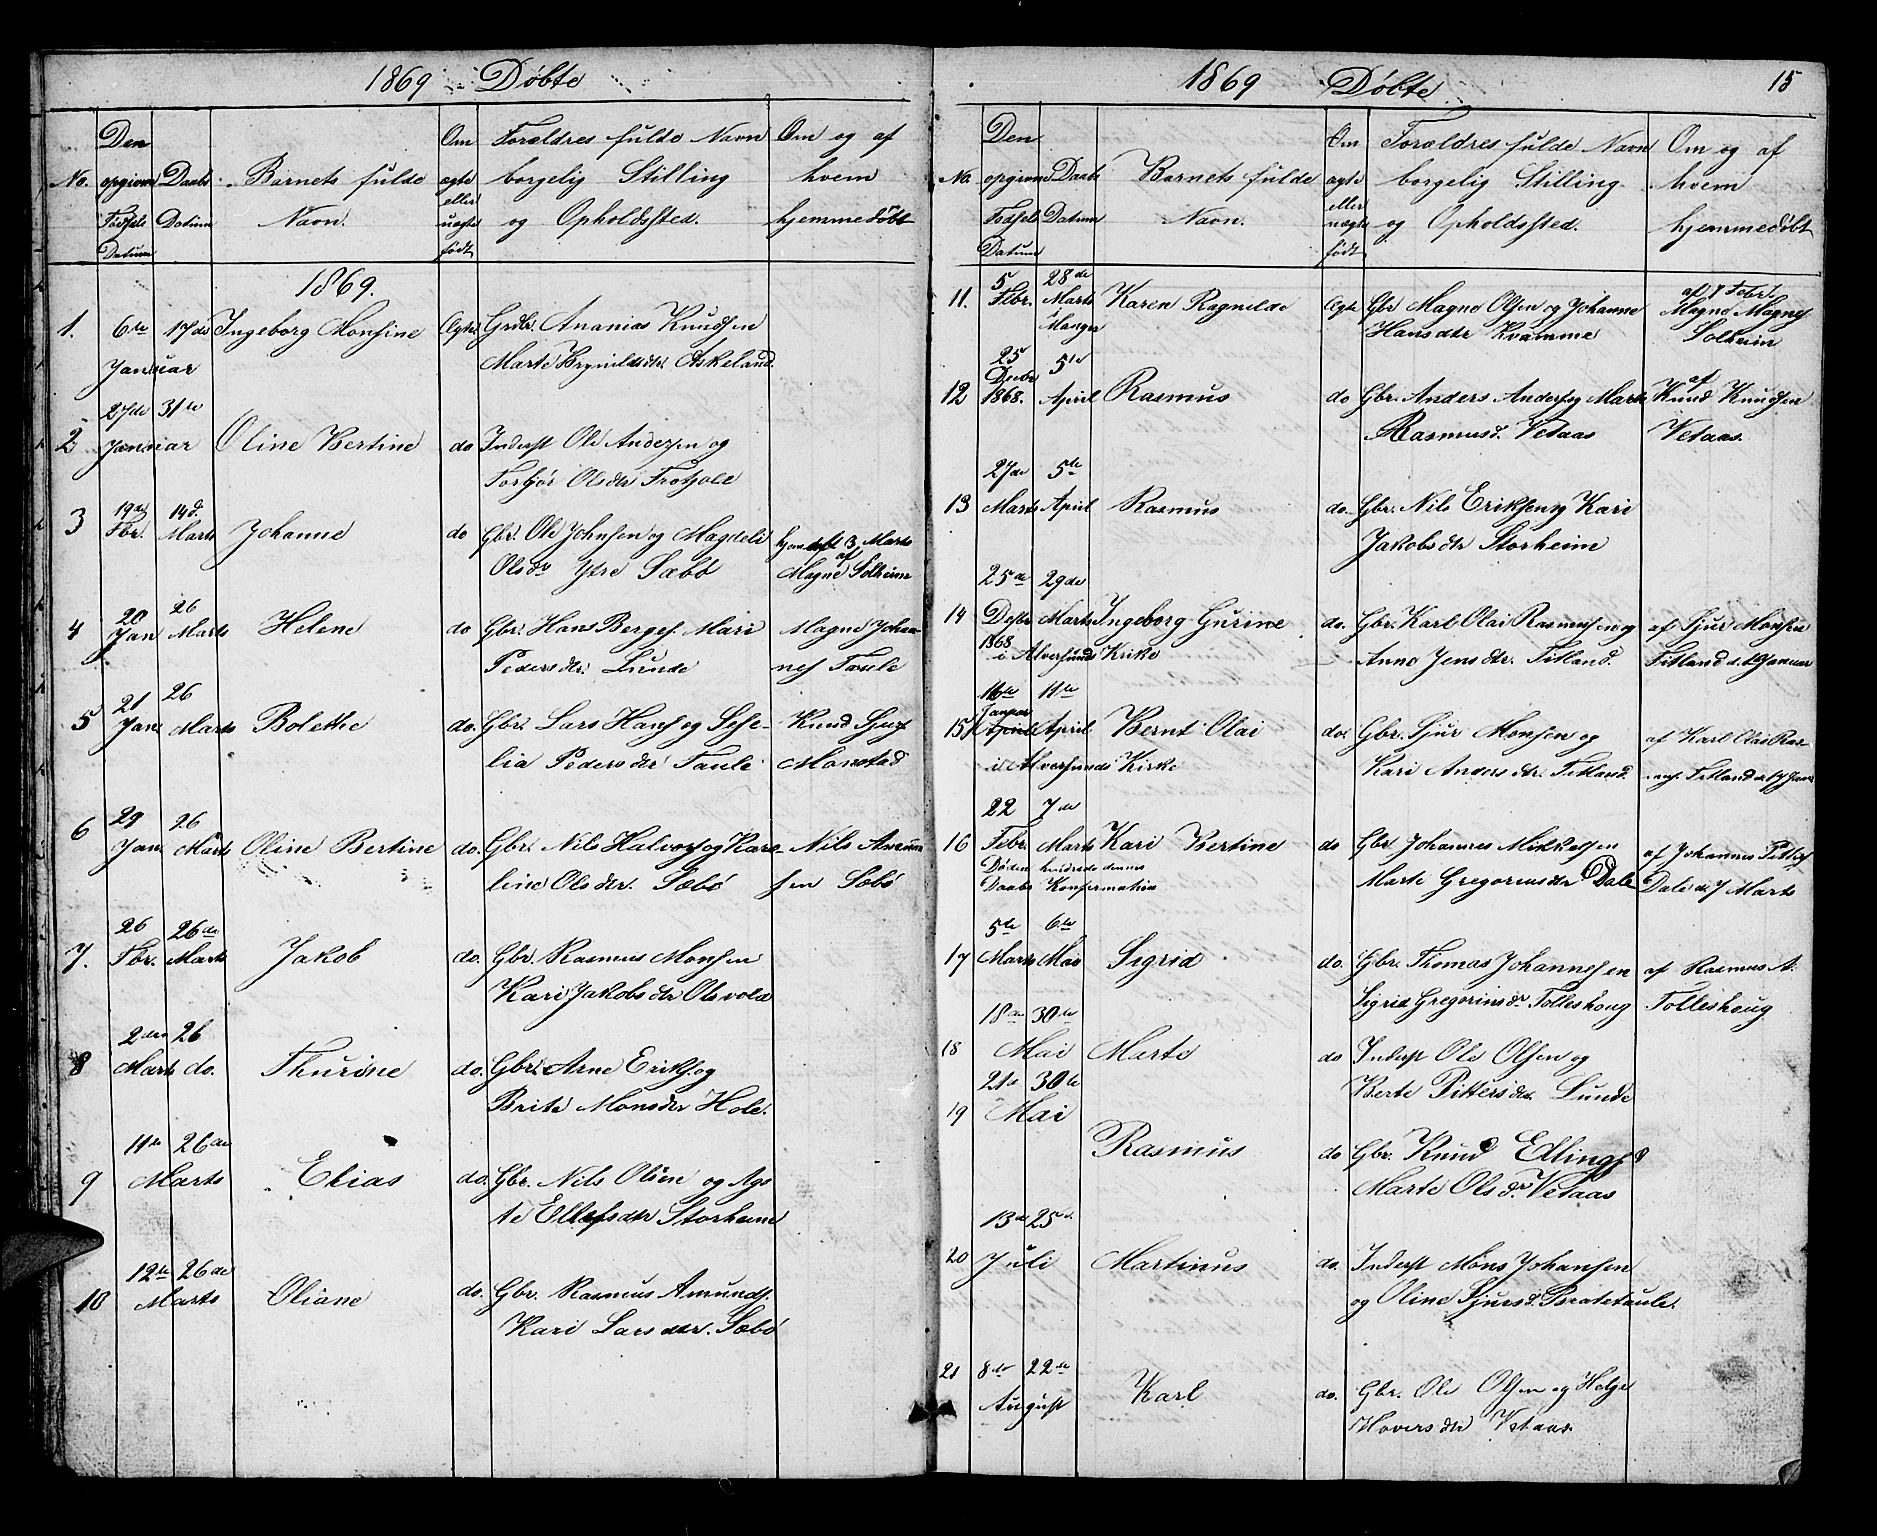 1869 Döbte
No.
Den opgivne Födsels Datum
Daabs Datum
Barnets fulde Navn.
Om ægte eller uægte födt
Forældres fulde Navn borgelig Stilling og Opholdssted.
Om og af hvem hjemmedöbt
1869.
1. 6te 17de Ingeborg Monsine Ægte Grdbr. Ananias Knudsen
Januar Marte Brynildsdtr. Askeland.
27de 31te
2 Januar Oline Bertine do Inderst Ole Andersen og
Torbjör Olsdtr
19de 14d.
3 Fbr. Marts Johanne do Gbr. Ole Johnsen og Magdeli hjemdöbt 3 Marts
Olsdr Ytre Sæbö af Magne Solheim
20 26
4 Jan Marts Helene do Gbr. Hans Berges. Mari Magne Johan-
Pedersdtr. Lunde nes Taule
21 26
5 Jan. Marts Bolethe do. Gbr. Lars Hans og Sese- Knud Sjurs
lia Pedersdtr Taule Monstad
29 26
6 Jan. Marts Oline Bertine do. Gbr. Nils Halvors og Kare- Nils Amun
line Olsdtr. Sæbö sen Sæbö
26 26de
7. Fbr. Marts Jakob do. Gbr. Rasmus Monsen
Kari Jakobsdtr Olsvold
2den 26
8 Marts do. Thurine do. Gbr. Arne Eriks. og
Brite Monsdtr Hole.
11te 26de
9 Marts Elias do. Gbr. Nils Olsen og Ags
te Ellefsdtr Storheim
12te 26de
10 Marts Oliane do. Gbr. Rasmus Amunds.
Kari Larsdtr. Sæbö
1869 Döbte 15
No.
Den opgivne Födsel Datum
Daabs Datum
Barnets fulde Navn.
Om ægte eller uægte födt
Forældres fulde Navn borgelig Stilling og Opholdssted.
Om og af hvem hjemmedöbt
5 28de
11. Febr. Marts Karen Ragnilde Ægte Gbr Magne Olsen og Johanne af Febr. Magne Magnes
i Manger Hansdtr Kvamme Solheim
25 5te
Decbr
12 1868. April Rasmus do Gbr. Anders Anders og Marte af Knud Knudsen
Rasmusd. Vetaas Vetaas.
27de 5te
13 Marts April Rasmus do. Gbr. Nils Eriksen og Kari
Jakobsdtr Storheim
25de 29de
14 Marts Ingeborg Gurine do. Gbr. Karl Olai Rasmussen og af Sjur Monsen
1868 i Alversunds Kirke Anne Jensdtr. Titland. Titland d. Januar
16te 11te
Januar
15 April April Bernt Olai do. Gbr. Sjur Monsen og af Karl Olai Ras-
i Alversunds Kirke Kari Andersdtr. Titland. Titland d. 17 Janr
22 7de
16 Febr. Marts Kari Bertine do Gbr Johannes Mikkelsen af Johannes
Döden hindrede dennes
Daabs Konfirmation Marte Gregoriusdtr Dale Dale de 7 Marts
5te 6te
17 Marts Mai Sigrid do. Gbr. Thomas Johannesen af Rasmus A.
Sigrid Gregoriusdr Tolleshoug Tolleshoug
18de 30te
18 Mai Marte do Inderst Ole Olsen og
Berte Pittersdtr. Lunde
21de 30te
19 Mai Rasmus do Gbr. Knud Edlings
Marte Olsdr Vetaas
13de 25de
20 Juli Martinus do. Inderst Mons Johansen
og Oline Sjursd. Bratetaule.
21 8de 22de
August Karl do. Gbr. Ole Olsen og Helge
Haversdtr Vetaas.